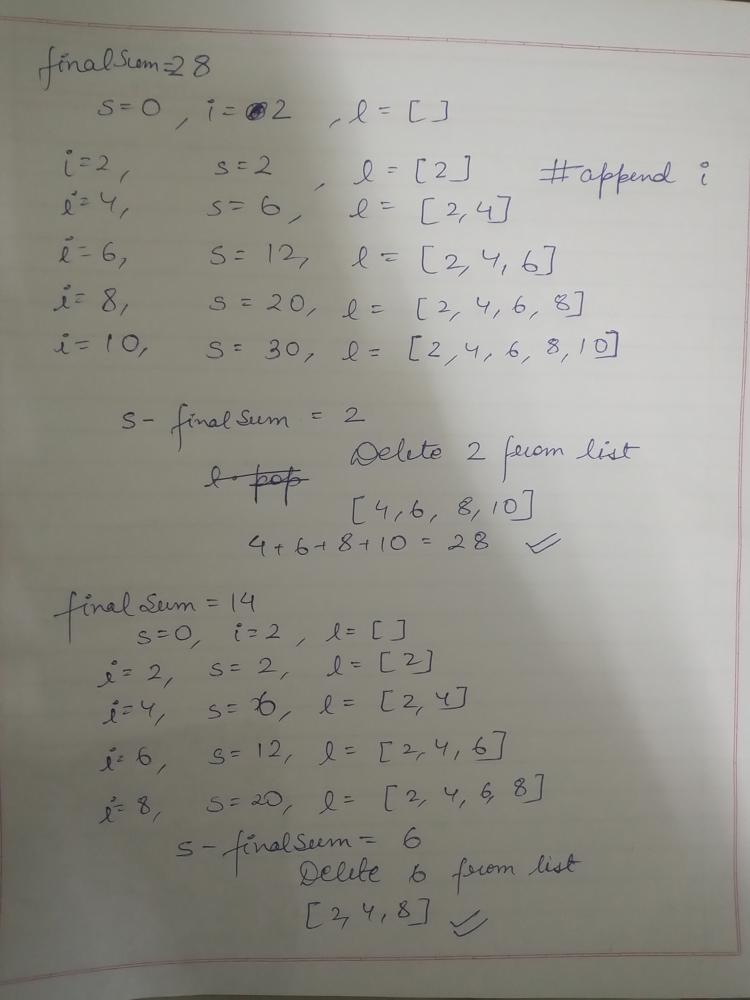 finalSum=28
s=0, i=2, l=[]
i=2, s=2, l=[2] #append i
i=4, s=6, l=[2,4]
i=6, s=12, l=[2,4,6]
i=8, s=20, l=[2,4,6,8]
i=10, s=30, l=[2,4,6,8,10]
s-finalSum=2
Delete 2 from list
l.pop
[4,6,8,10]
4+6+8+10=28 ✓
finalSum=14
s=0, i=2, l=[]
i=2, s=2, l=[2]
i=4, s=6, l=[2,4]
i=6, s=12, l=[2,4,6]
i=8, s=20, l=[2,4,6,8]
s-finalSum=6
Delete 6 from list
[2,4,8] ✓